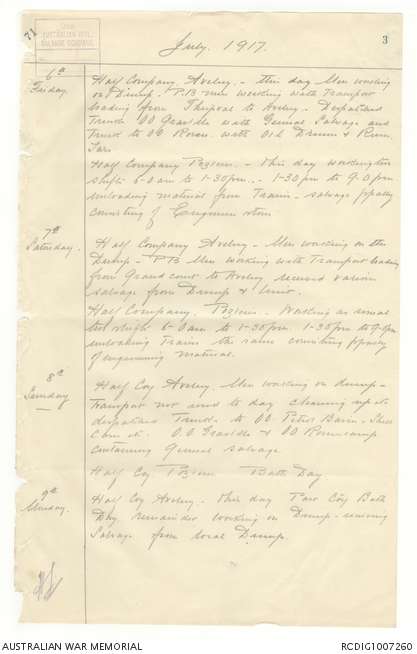 71
AUSTRALIAN
SALVAGE COMPANY
3
July. 1917.
6th
Friday
Half Company Aveluy. - This day Men working
on Dump - P.B men working with Transport
loading from Thiepval to Aveluy. Despatched
Truck OO with General Salvage and
Truck to OO Rouen with Oil Drums &
Half Company - This day working two
shifts 6-0 am to 1-30 pm. - 1-30 pm to 9-0 pm
unloading material from Train - salvage
consisting of Engineer stores
7th
Saturday.
Half Company Aveluy - Men working on the
Dump - P.B Men working with Transport loading
from Grandcourt to Aveluy received various
salvage from Dump & Unit.
Half Company. Working as usual
two shifts 6-0 am to 1-30 pm. 1-30 pm to 9-0 pm
unloading Trains the same consisting
of engineering material.
8th
Sunday
Half Coy Aveluy Men working on dump -
Transport not used to day cleaning up etc
despatched Trucks to OO Petrol
OO & OO
containing General salvage.
Half Coy Bath Day
9th
Monday.
Half Coy Aveluy. - This day Coy Bath
Day remainder working on Dump - receiving
Salvage from local Dump.
AUSTRALIAN WAR MEMORIAL
RCDIG1007260